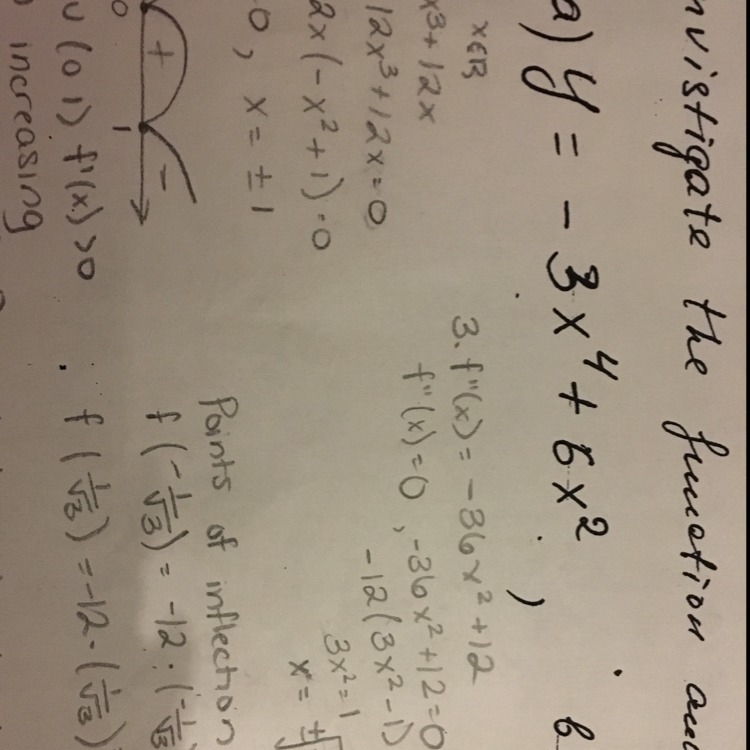 nvistigate the function and
a) y = -3x⁴ + 6x² ,
x∈R
x³+12x
12x³+12x=0
2x(-x²+1)=0
0, x = ±1
+ -
0 1
∪(0 1) f'(x)>0
increasing
3. f''(x) = -36x²+12
f''(x)=0, -36x²+12=0
-12(3x²-1)
3x²=1
x = ±√
Points of inflection
f(-1/√3) = -12·(-1/√3)
f(1/√3) = -12·(1/√3)